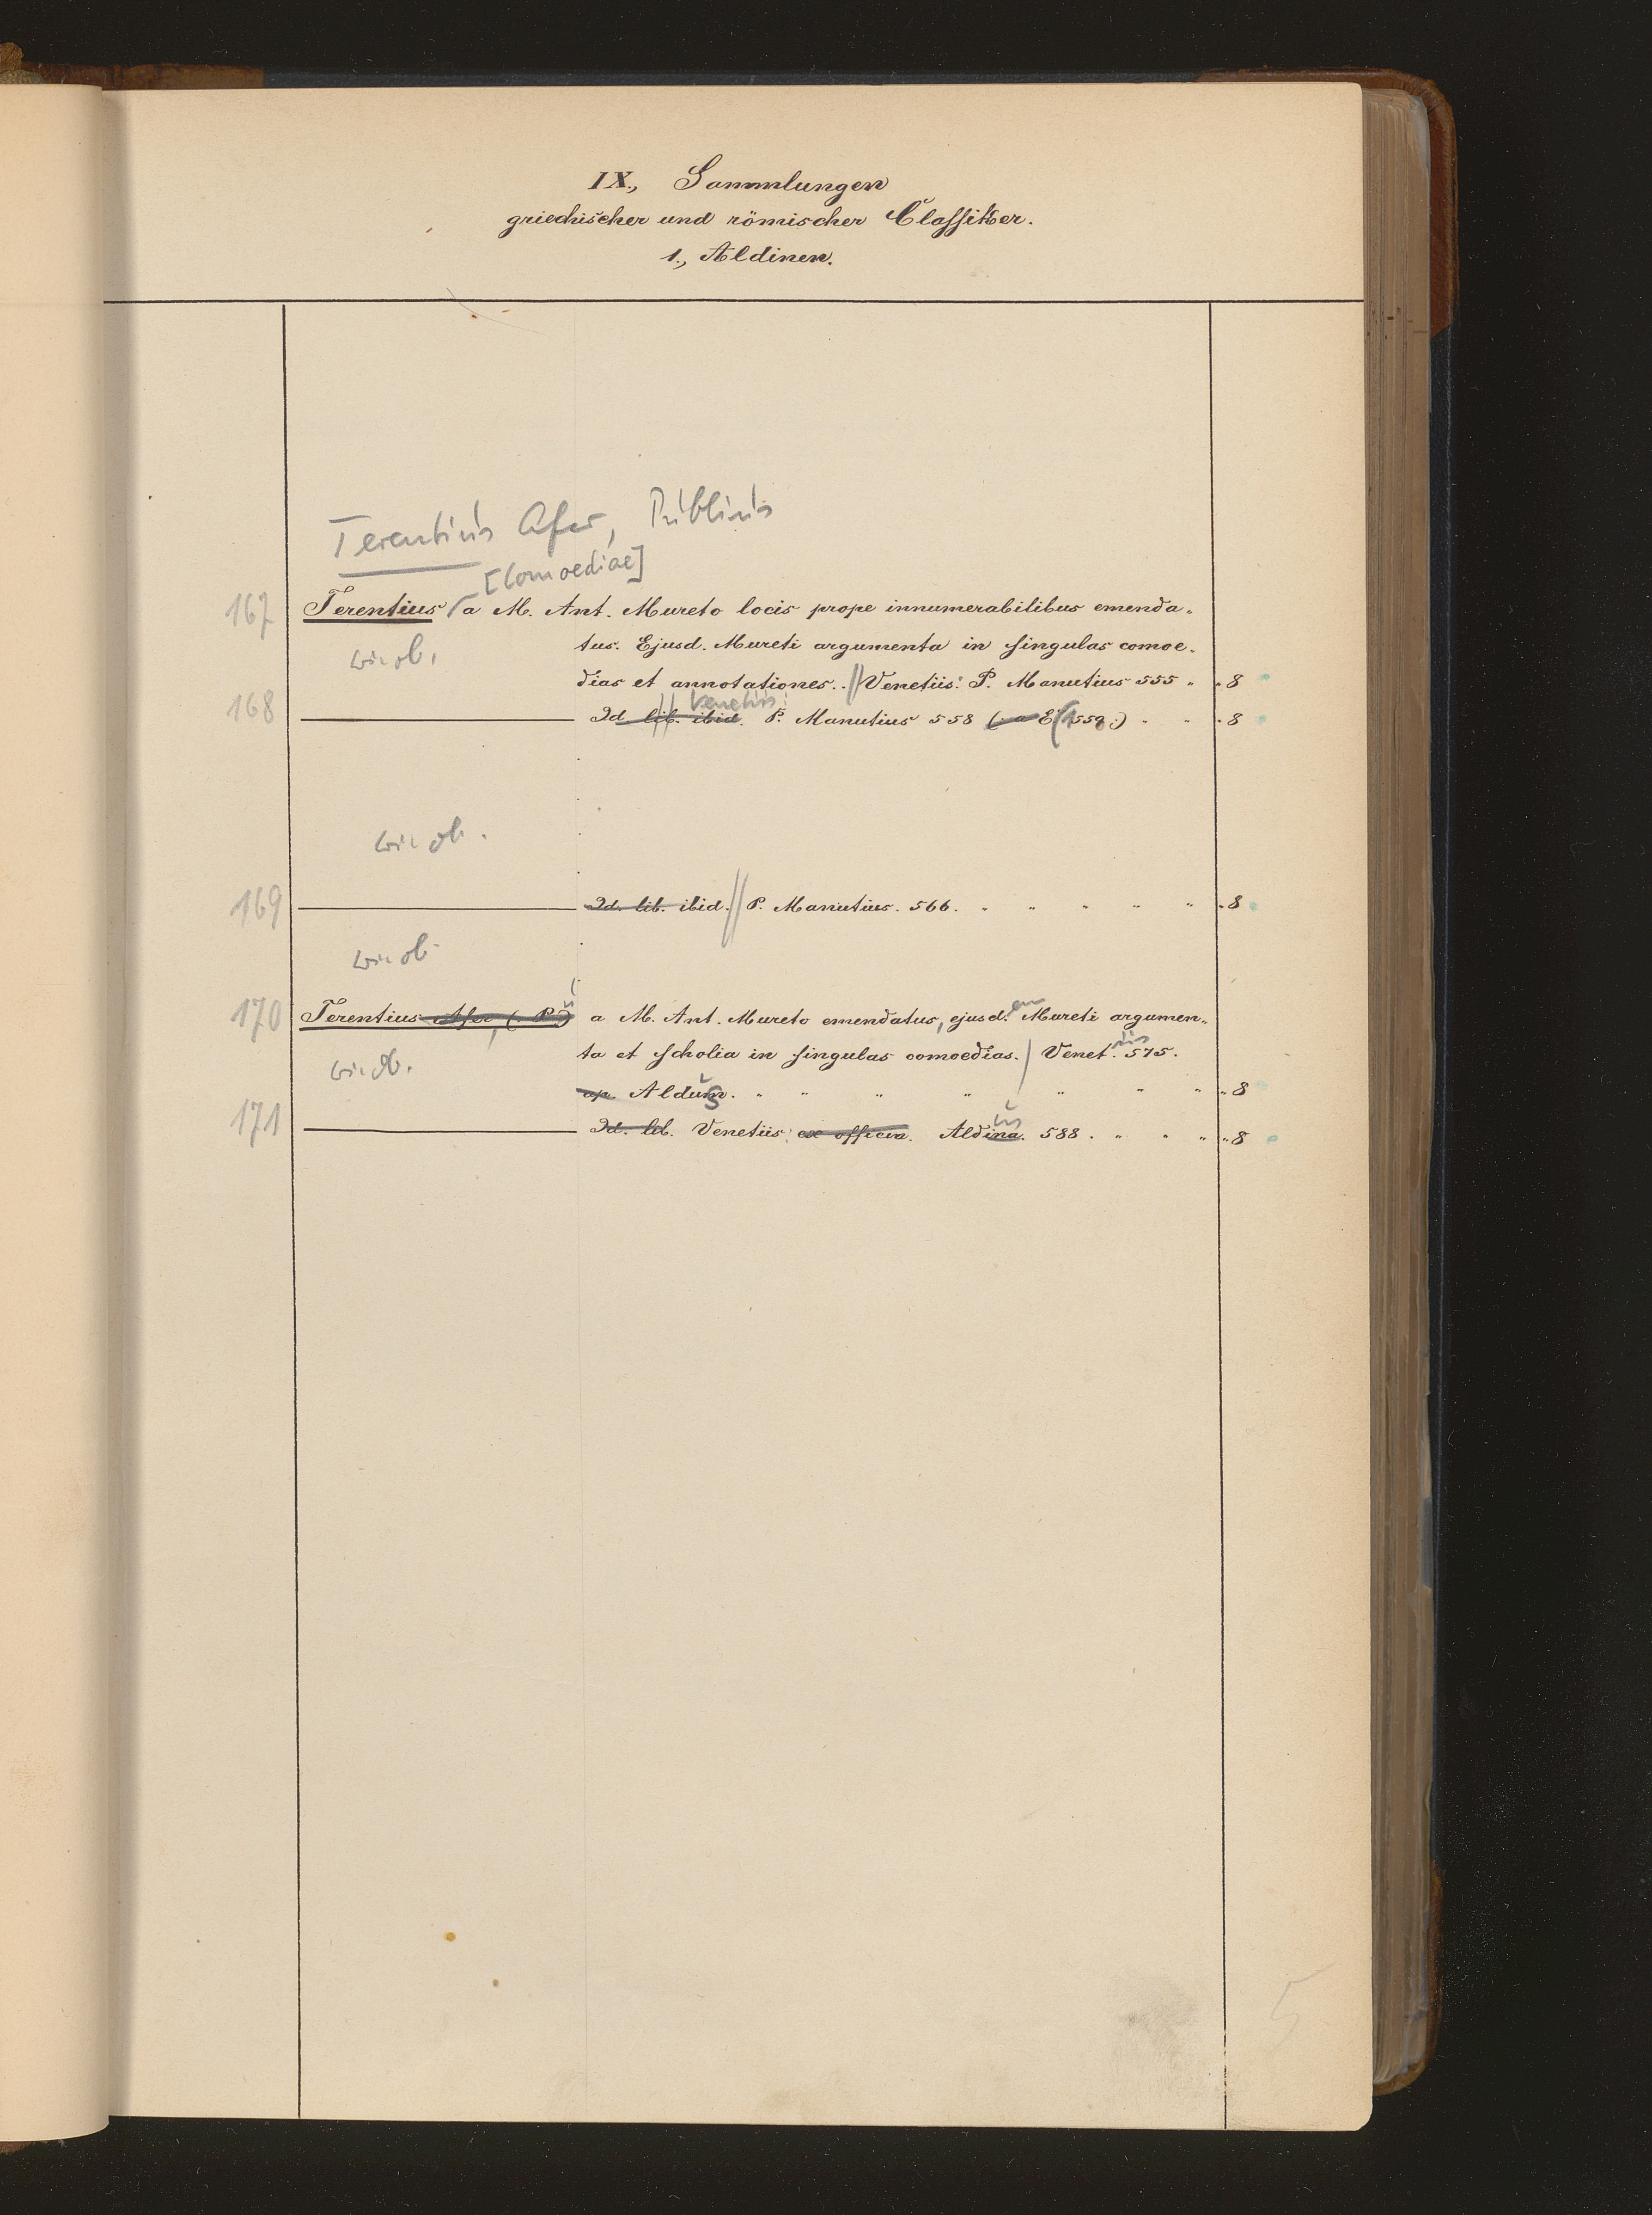 IX., Sammlungen
griechischer und römischer Classiker.
1., Aldinen.
Terentius Afer, Publius
[Comoediae]
167 Terentius a M. Ant. Mureto locis prope innumerabilibus emenda-
tus. Ejusd. Mureti argumenta in singulas comoe-
wie ob.
dias et annotationes. // Venetiis: P. Manutius 555 " " 8
Venetiis
168 Id. lib. ibid. P. Manutius 558 (1559.) " " " 8
wie ob.
169 Id. lib. ibid. // P. Manutius. 566. " " " " " " 8
wie ob.
170 Terentius Afer, (P.) a M. Ant. Mureto emendatus, ejusd. Mureti argumen-
ta et scholia in singulas comoedias. / Venet. 575.
wie ob.
ap. Aldum. " " " " " " " " 8
171 Id. lib. Venetiis: ex officin. Aldina. 588. " " " " 8
5